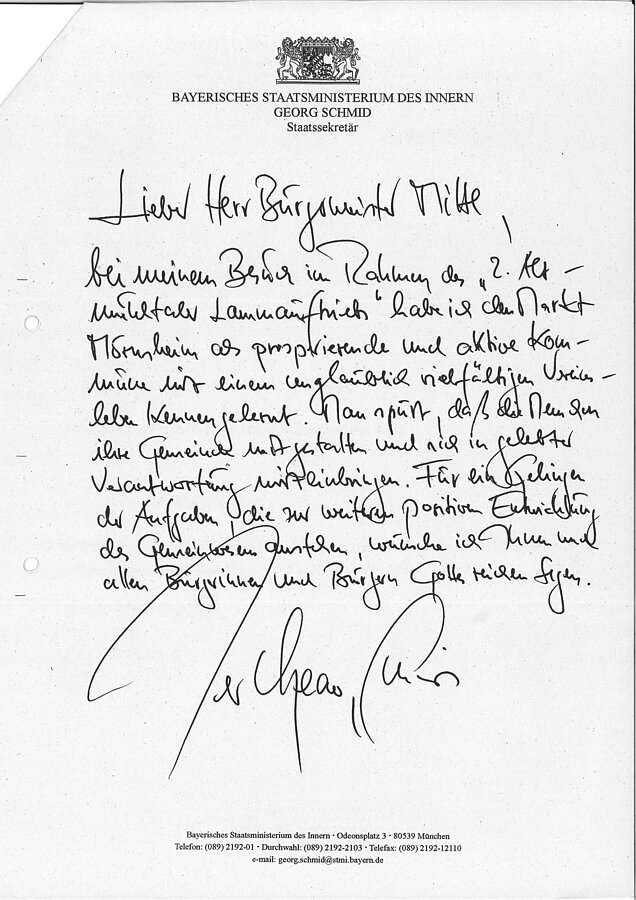 BAYERISCHES STAATSMINISTERIUM DES INNERN
GEORG SCHMID
Staatssekretär
Lieber Herr Bürgermeister Mittl,
bei meinem Besuch im Rahmen des „2. Alt-
mühltaler Lammauftriebs" habe ich den Markt
Mörnsheim als prosperierende und aktive Kom-
mune mit einem unglaublich vielfältigen Vereins-
leben kennengelernt. Man spürt, daß die Menschen
ihre Gemeinde mitgestalten und sich in gelebter
Verantwortung miteinbringen. Für ein Gelingen
der Aufgaben, die zur weiteren positiven Entwicklung
des Gemeinwesens anstehen, wünsche ich Ihnen und
allen Bürgerinnen und Bürgern Gottes reichen Segen.
Ihr Georg Schmid
Bayerisches Staatsministerium des Innern · Odeonsplatz 3 · 80539 München
Telefon: (089) 2192-01 · Durchwahl: (089) 2192-2103 · Telefax: (089) 2192-12110
e-mail: georg.schmid@stmi.bayern.de